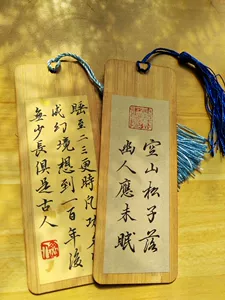 睡至二三更時凡功
成幻境想到一百年後
無少長俱是古人
空山松子落
幽人應未眠